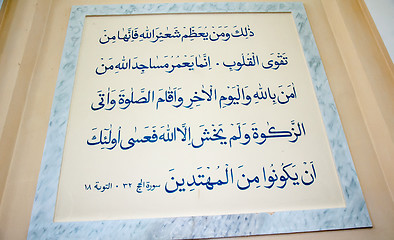 ذلِكَ وَمَنْ يُعَظِّمْ شَعَائِرَ اللهِ فَإِنَّهَا مِنْ
تَقْوَى الْقُلُوبِ ٠ إِنَّمَا يَعْمُرُ مَسَاجِدَ اللهِ مَنْ
اٰمَنَ بِاللهِ وَالْيَوْمِ الْاٰخِرِ وَأَقَامَ الصَّلوٰةَ وَاٰتَى
الزَّكوٰةَ وَلَمْ يَخْشَ إِلَّا اللهَ فَعَسٰى أُولٰئِكَ
اَنْ يَكُونُوا مِنَ الْمُهْتَدِينَ سورة الحج ٣٢ ٠ التوبة ١٨